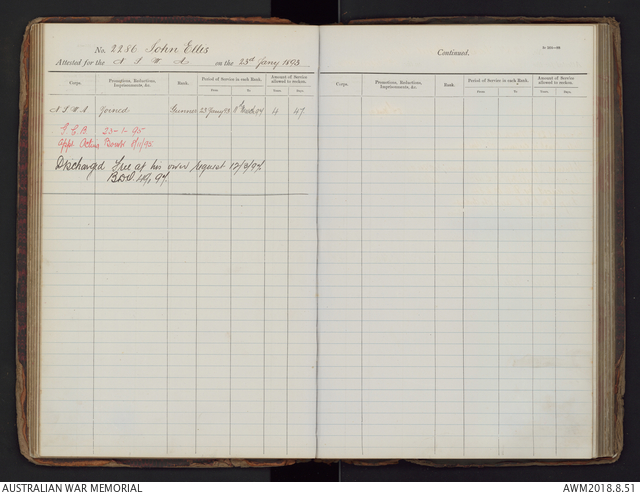 No. 2286 John Ellis
Attested for the N S W A on the 23rd Jany 1893
Corps. Promotions, Reductions, Imprisonments, &c. Rank. Period of Service in each Rank. Amount of Service allowed to reckon.
From To Years. Days.
N.S.W.A Joined Gunner 23 Jany 93 4 47
G C B 23-1-95
Appt. Acting Bombr 1/11/95
Discharged Free at his own request 12/3/97
97.
Continued.
Corps. Promotions, Reductions, Imprisonments, &c. Rank. Period of Service in each Rank. Amount of Service allowed to reckon.
From To Years. Days.
AUSTRALIAN WAR MEMORIAL
AWM2018.8.51